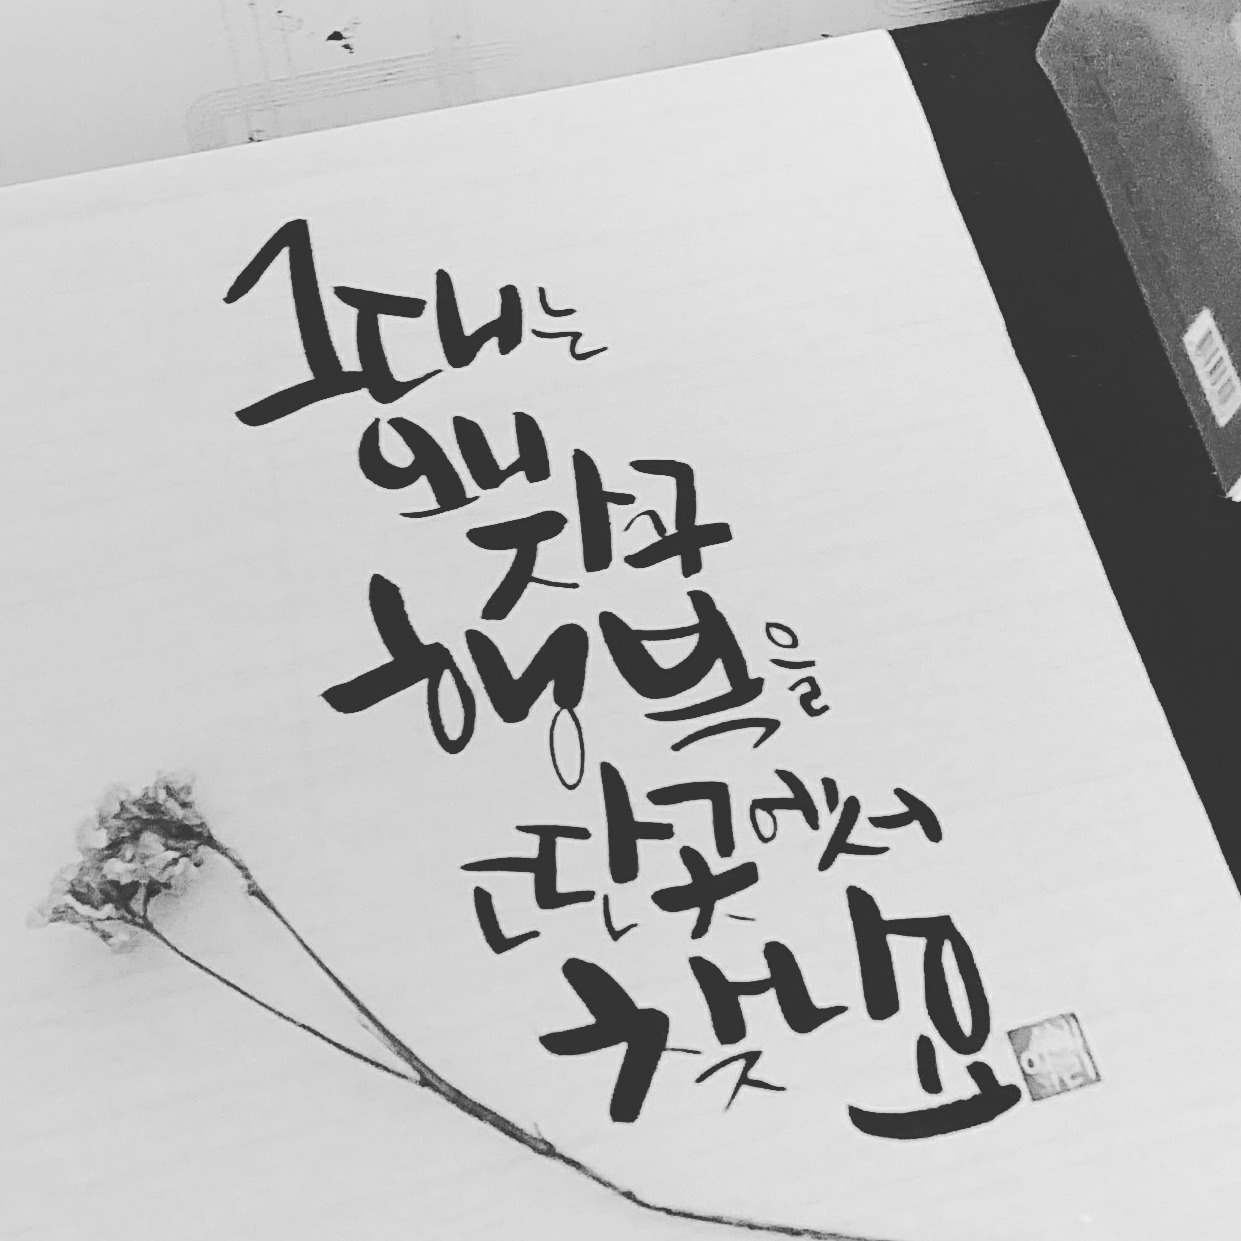 그대는
왜 자꾸
행복을
딴곳에서
찾나요